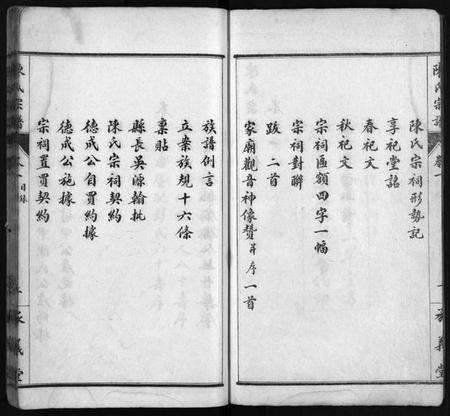 陳氏宗譜
卷一
一
承義堂
陳氏宗祠形勢記
享祀堂銘
春祀文
秋祀文
宗祠匾額四字一幅
宗祠對聯
跋二首
家廟觀音神像贊并序一首
族譜例言
立案族規十六條
稟貼
縣長吳源翰批
陳氏宗祠契約
德成公自買約據
德成公施據
宗祠置買契約
陳氏宗譜
卷一 目錄
承義堂